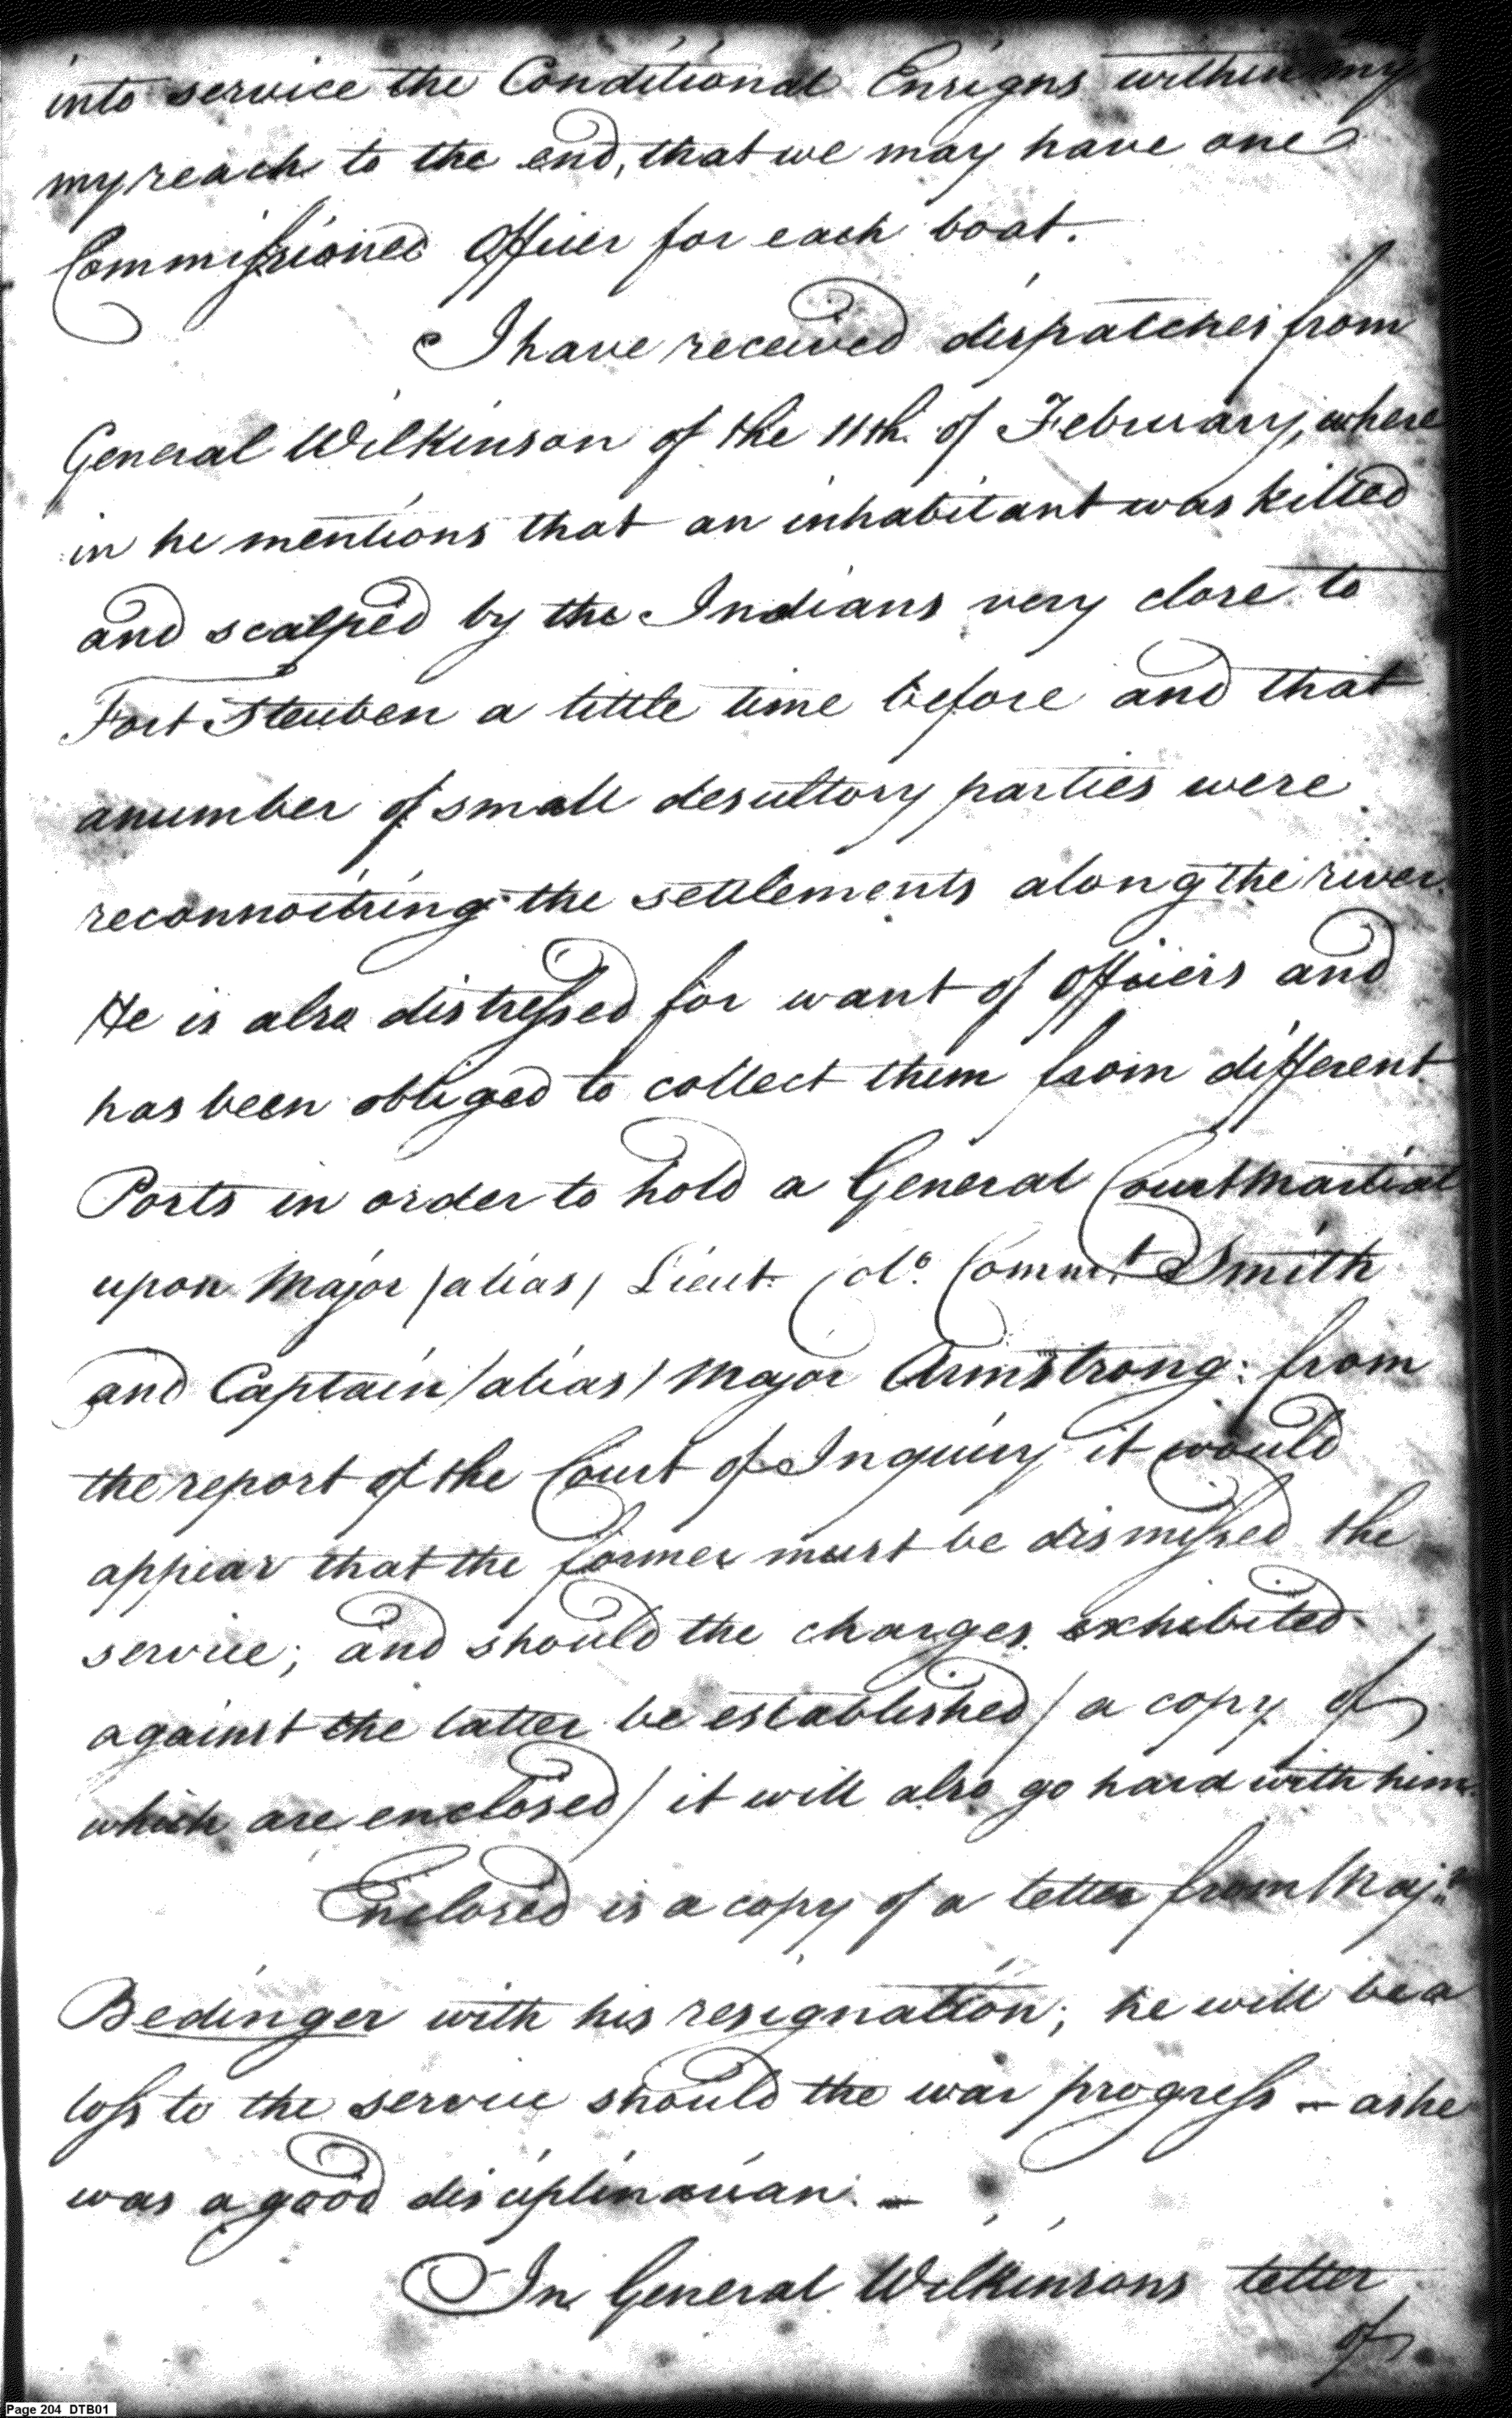 into service the Conditional Ensigns within my
my reach to the end, that we may have one
Commissioned Officer for each boat.
I have received dispatches from
General Wilkinson of the 11th. of February, where
in he mentions that an inhabitant was killed
and scalped by the Indians very close to
Fort Steuben a little time before and that
a number of small desultory parties were
reconnoitring the settlements along the river.
He is also distressed for want of Officers and
has been obliged to collect them from different
Posts in order to hold a General Court Martial
upon Major /alias/ Lieut. Colo. Commt. Smith
and Captain /alias/ Major Armstrong: from
the report of the Court of Inquiry it would
appear that the former must be dismissed the
service; and should the charges exhibited
against the latter be established / a copy of
which are enclosed / it will also go hard with him.
Enclosed is a copy of a letter from Majr.
Bedinger with his resignation; he will be a
loss to the service should the war progress — as he
was a good disciplinarian. —
In General Wilkinsons letter
of
Page 204 DTB01